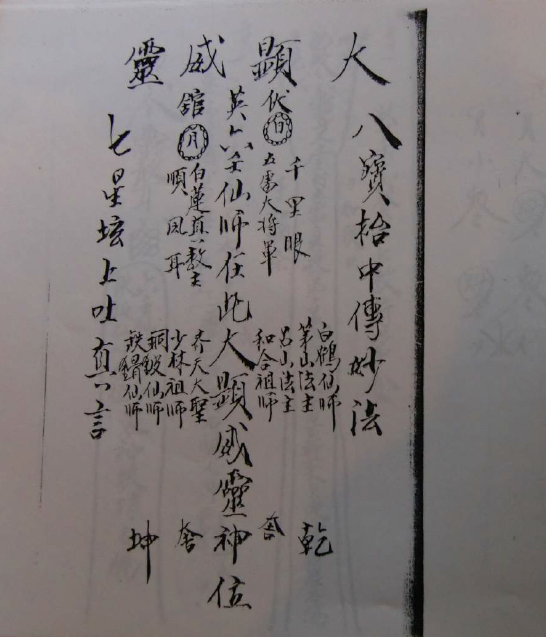 大顯威靈
八寶枱中傳妙法
千里眼
白鶴仙師
茅山法主
乾
伏
日
五雷大將軍
呂山法主
和合祖師
英
六壬仙師在此大顯威靈神位
館
月
白蓮真人教主
順風耳
齊天大聖
少林祖師
銅 仙師
鉄 仙師
坤
七星坛上吐真言